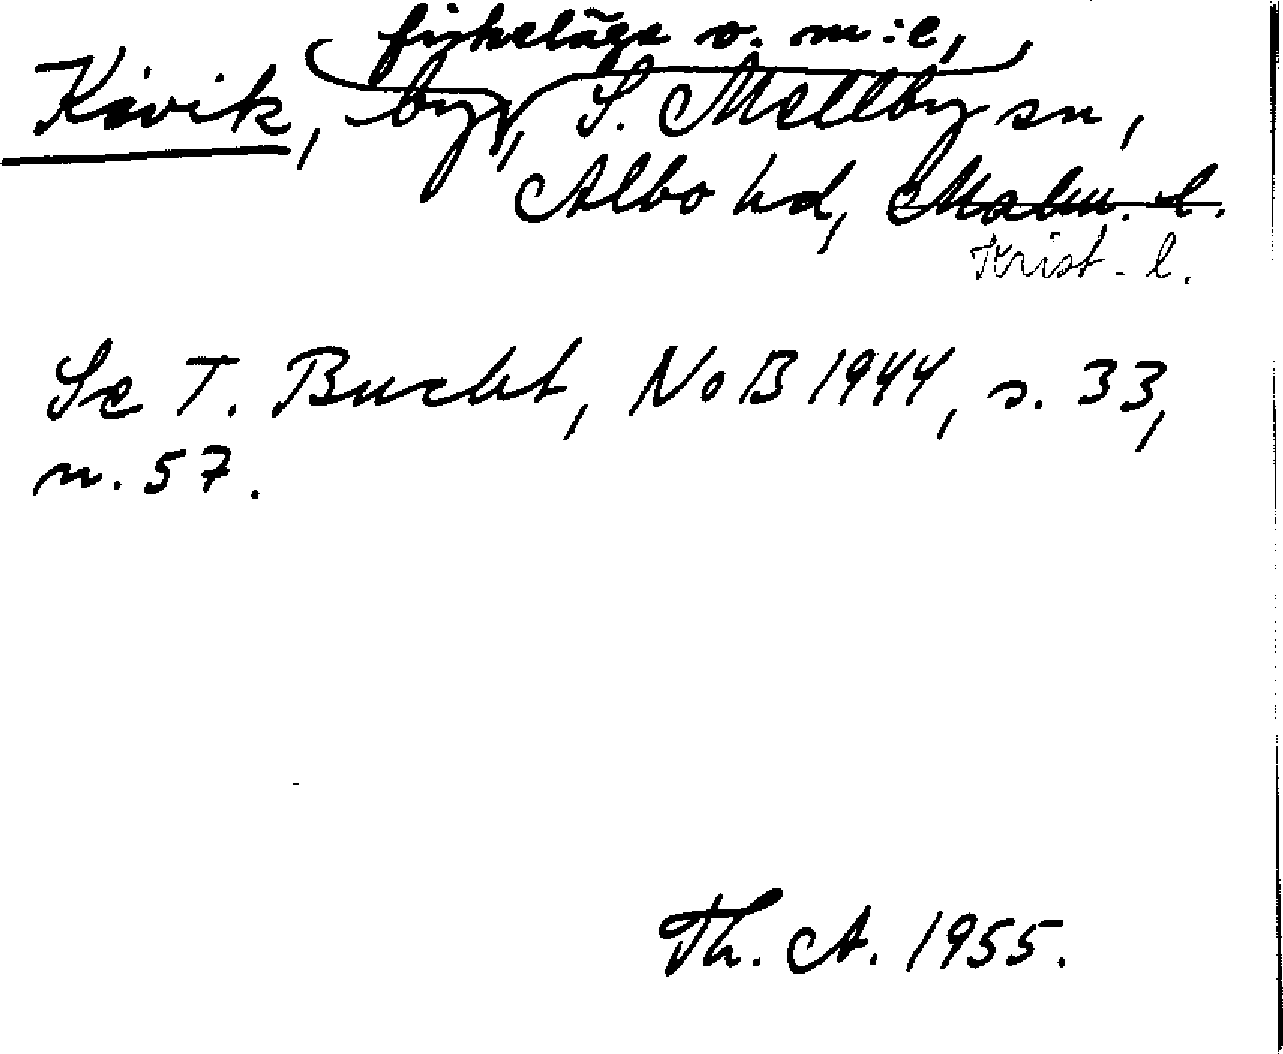 fiskeläge o. m:e,
Kivik, by, S. Mellby sn,
Albo hd, Malm. l.
Krist. l.
Se T. Bucht, NoB 1944, s. 33,
n. 57.
Th. A. 1955.